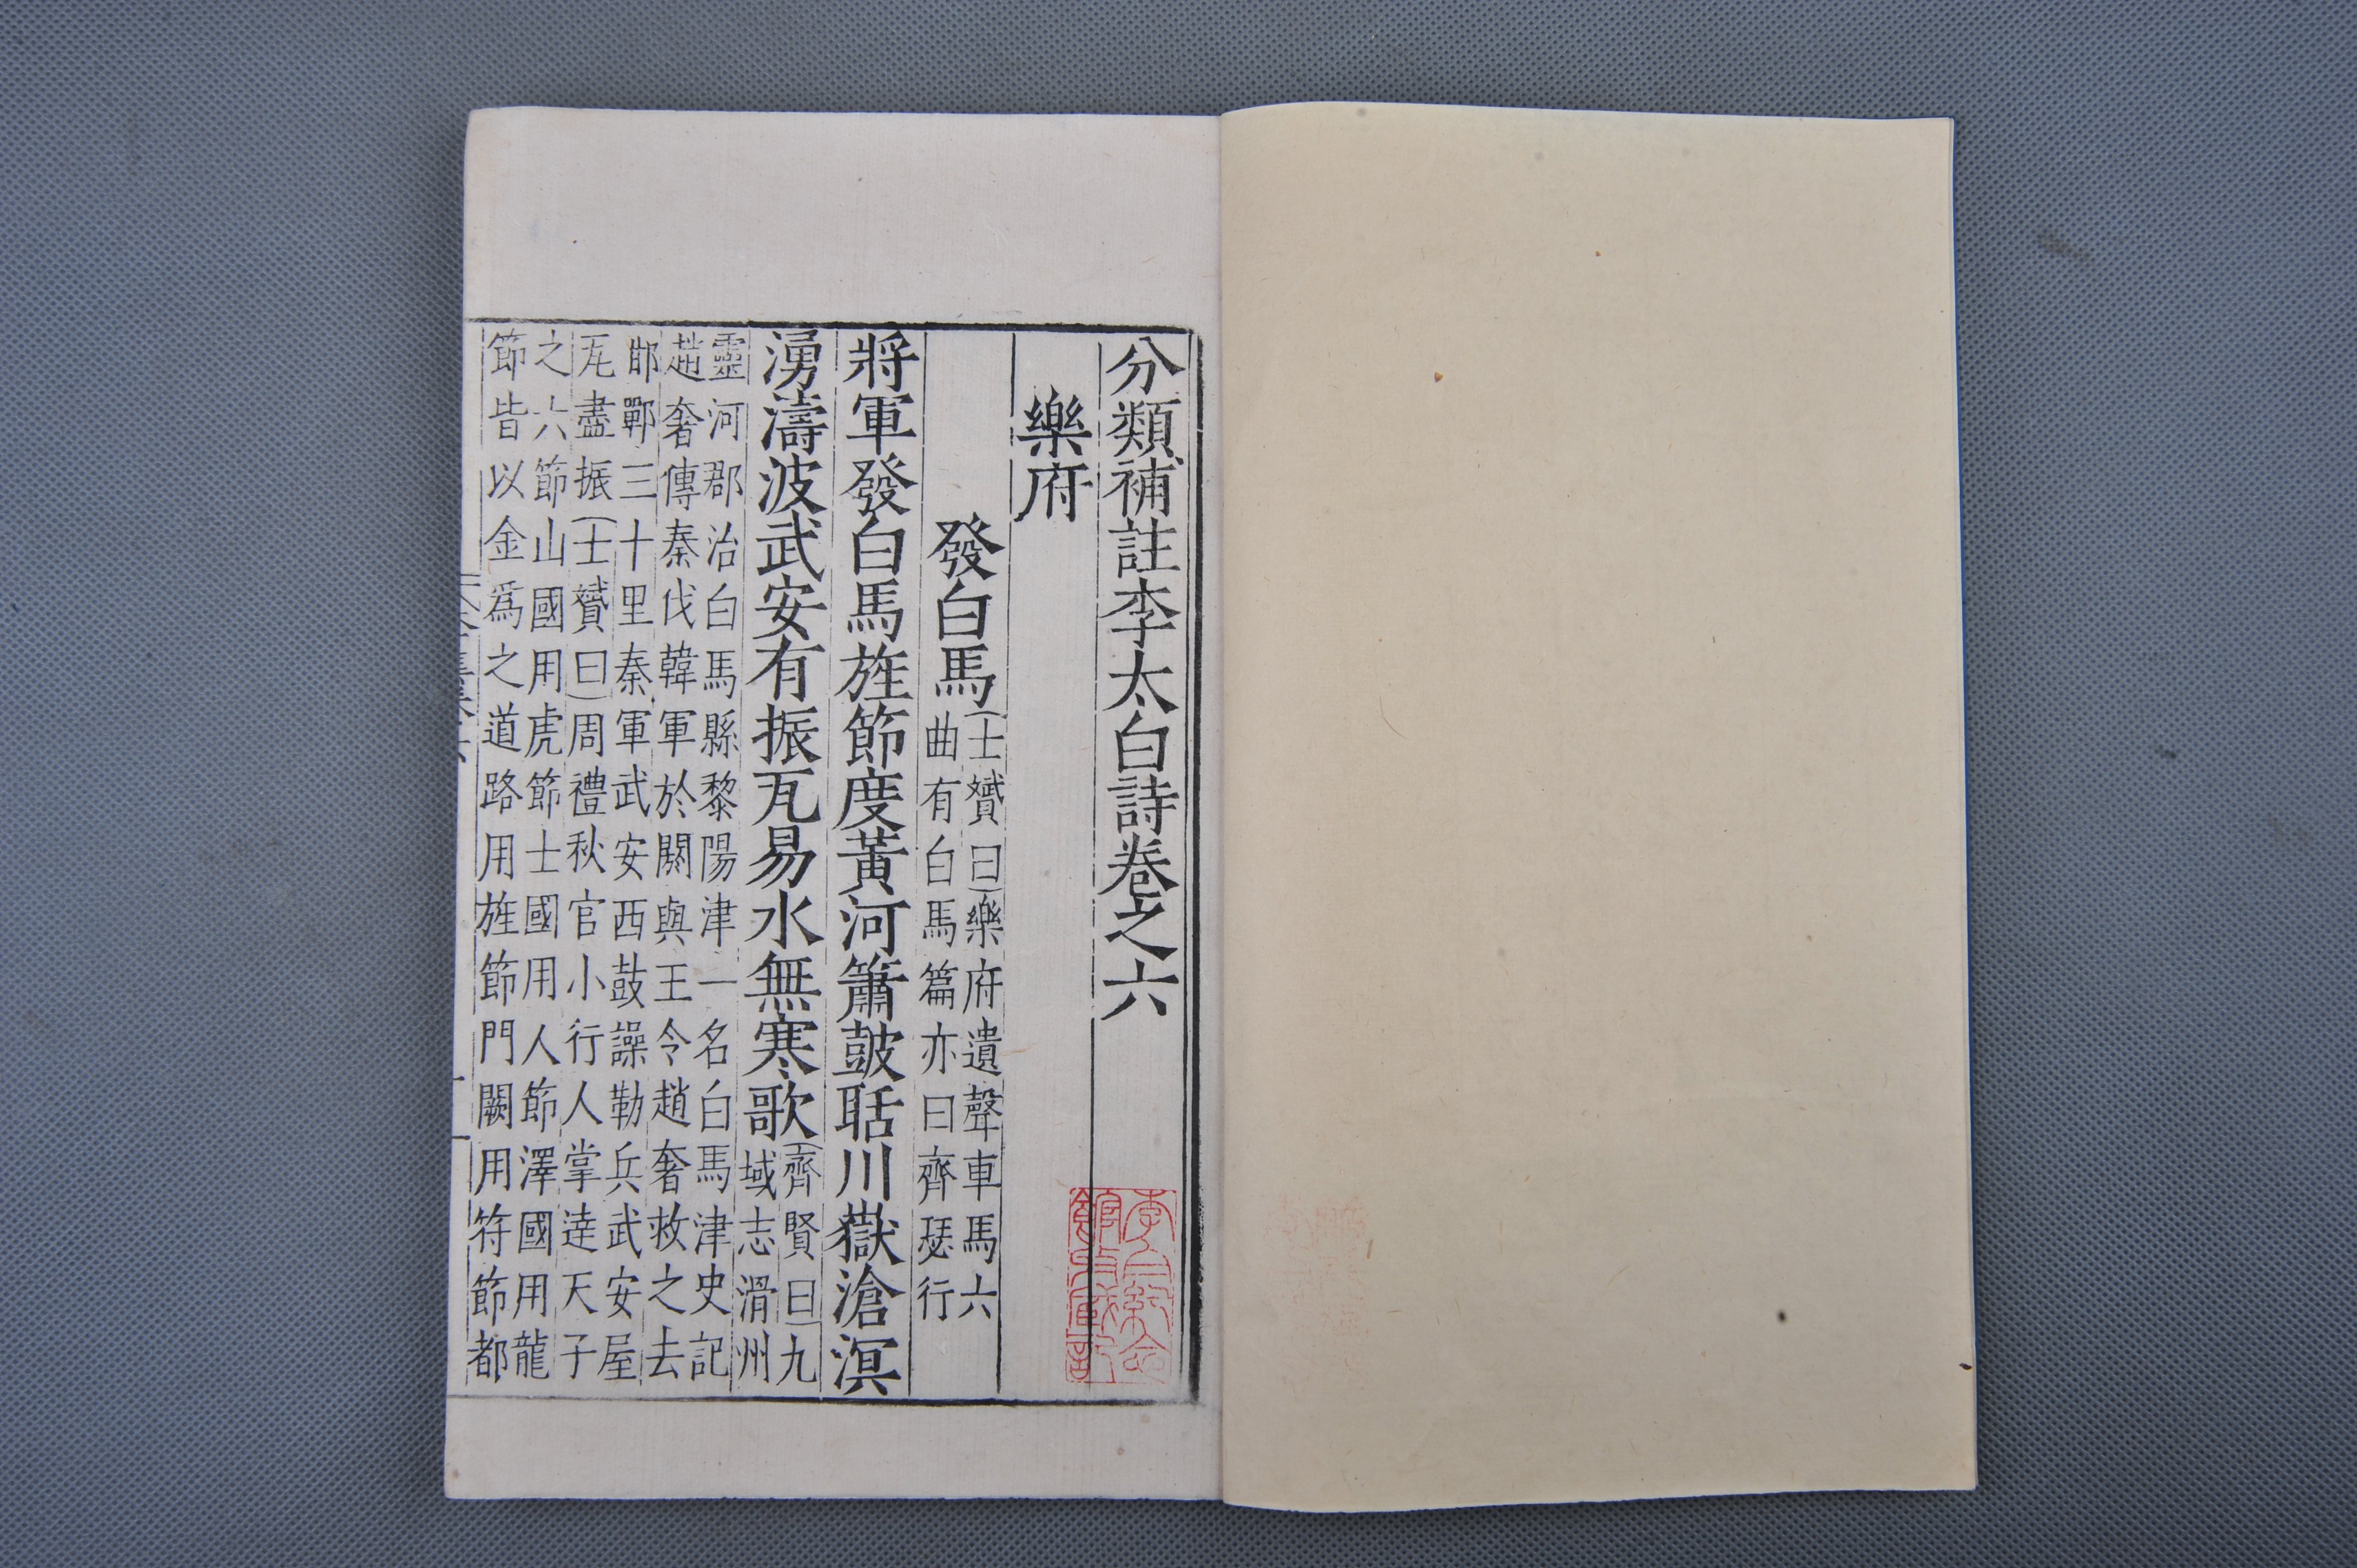 分類補註李太白詩卷之六
樂府
發白馬
士贇曰樂府遺聲車馬六
曲有白馬篇亦曰齊瑟行
將軍發白馬旌節度黃河簫鼓聒川嶽滄溟
湧濤波武安有振瓦易水無寒歌
齊賢曰九
域志滑州
靈河郡治白馬縣黎陽津一名白馬津史記
趙奢傳秦伐韓軍於閼與王令趙奢救之去
邯鄲三十里秦軍武安西鼓譟勒兵武安屋
瓦盡振士贇曰周禮秋官小行人掌達天子
之六節山國用虎節士國用人節澤國用龍
節皆以金爲之道路用旌節門闕用符節都
李白紀念
館收藏記